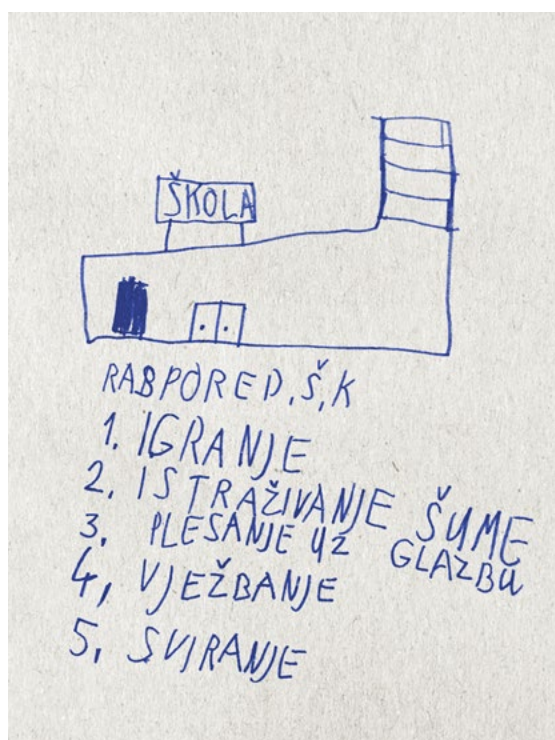 ŠKOLA
RABPORED,Š,K
1. IGRANJE
2, ISTRAŽIVANJE ŠUME
3, PLESANJE UZ GLAZBU
4, VJEŽBANJE
5, SVIRANJE